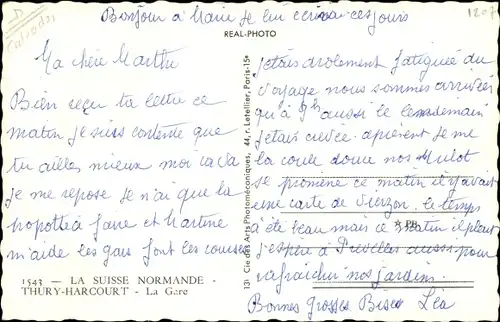 Bonjour a Marie je lui écrirai ces jours
REAL-PHOTO
Calvados
Ma chère Marthe
Bien reçu ta lettre ce
matin je suis contente que
tu ailles mieux moi ça va
je me repose je n'ai que la
popotte a faire et Martine
m'aide les gars font les courses
1543 — LA SUISSE NORMANDE -
THURY-HARCOURT - La Gare
131 Cie des Arts Photomécaniques, 44, r. Letellier, Paris-15e
jetais drolement fatiguée du
voyage nous sommes arrivées
qu'a 9h aussi le lendemain
jetais crevée apresent je me
la coule douce nos Mulot
se promène ce matin il y avait
une carte de Vierzon. le temps
a été beau mais ce matin il pleut
j'espère a Presles aussi pour
rafraichir nos jardins.
Bonnes Grosses Bises Léa